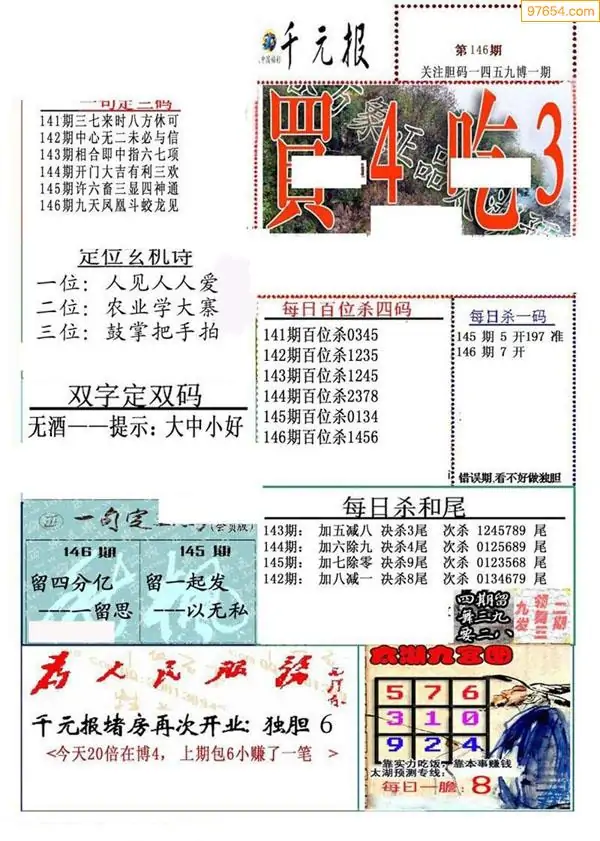 97654.com
中国福彩
千元报
第146期
关注胆码一四五九博一期
買 4 吃 3
一句定三码
141期三七来时八方休可
142期中心无二未必与信
143期相合即中指六七项
144期开门大吉有利三欢
145期许六畜三显四神通
146期九天凤凰斗蛟龙见
定位玄机诗
一位: 人见人人爱
二位: 农业学大寨
三位: 鼓掌把手拍
每日百位杀四码
141期百位杀0345
142期百位杀1235
143期百位杀1245
144期百位杀2378
145期百位杀0134
146期百位杀1456
每日杀一码
145 期 5 开197 准
146 期 7 开
错误期.看不好做独胆
双字定双码
无酒——提示: 大中小好
每日杀和尾
143期: 加五减八 决杀3尾 次杀 1245789 尾
144期: 加六除九 决杀4尾 次杀 0125689 尾
145期: 加七除零 决杀9尾 次杀 0123568 尾
142期: 加八减一 决杀8尾 次杀 0134679 尾
一句定
(会员版)
146 期
留四分亿
---一留思
145 期
留一起发
---以无私
四期留
舞三九
要二八
二期
领舞三
九发
为人民服务
千元报堵房再次开业: 独胆 6
<今天20倍在博4, 上期包6小赚了一笔 >
太湖九宫图
5 7 6
3 1 0
9 2 4
靠实力吃饭, 靠本事赚钱
太湖预测专线:
每日一胆: 8